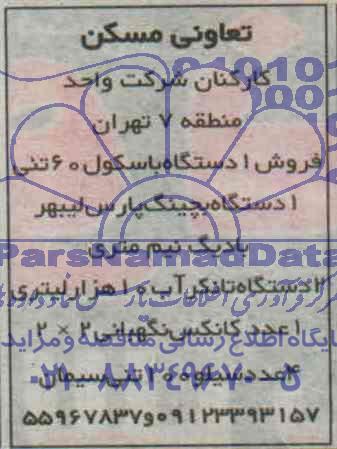 تعاونی مسکن
کارکنان شرکت واحد
منطقه ۷ تهران
فروش ۱ دستگاه باسکول ۶۰ تنی
۱ دستگاه بچینگ پارس لیبهر
بادیگ نیم متری
ParsNamadData
۲ دستگاه تانکر آب ۱۰ هزار لیتری
۱ عدد کانکس نگهبانی ۲ × ۲
پایگاه اطلاع رسانی مناقصه و مزایده
۴ عدد سیلو ۲۰۰ تنی سیمان
۰۲۱-۸۸۳۴۹۶۷۰-۵
۰۹۱۲۳۳۹۳۱۵۷ و ۵۵۹۶۷۸۳۷